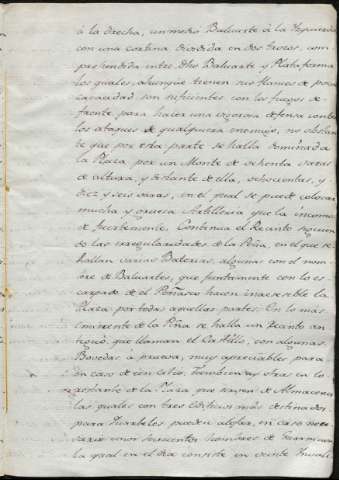 à la drecha, un metro Baluarte à la Izquierda
con una cortina dividida en dos trozos, com
prehendida entre dho Baluarte y Plataforma
los quales, ahunque tienen sus flancos de poca
capacidad son suficientes con los fuegos de
frente, para hacer una vigorosa defensa contra
los ataques de qualquiera enemigo, no obstan
te que por esta parte se halla dominada
la Plaza por un Monte de ochenta varas
de altura, y distante de ella, ochocientas, y
diez y seis varas, en el qual se puede colocar
mucha y gruesa Artilleria que la incomo
de fuertemente. Continua el Recinto siguien
do las irregularidades de la Peña, en el que se
hallan varias Baterias, algunas con el nom
bre de Baluartes, que juntamente con lo es
carpado del Peñasco hacen inaccesible la
Plaza por todas aquellas partes. En lo mas
eminente de la Peña se halla un Recinto an
tiguo, que llaman el Castillo, con algunas
Bovedas à prueva, muy apreciables para
en caso de un sitio. Tambien hay otras en lo
restante de la Plaza que sirven de Almacenes
las quales con tres Edificios mas destinados
para Quarteles pueden alojar, en caso nece
sario unos seiscientos hombres de Guarnicion
la qual en el dia consiste en veinte Invali